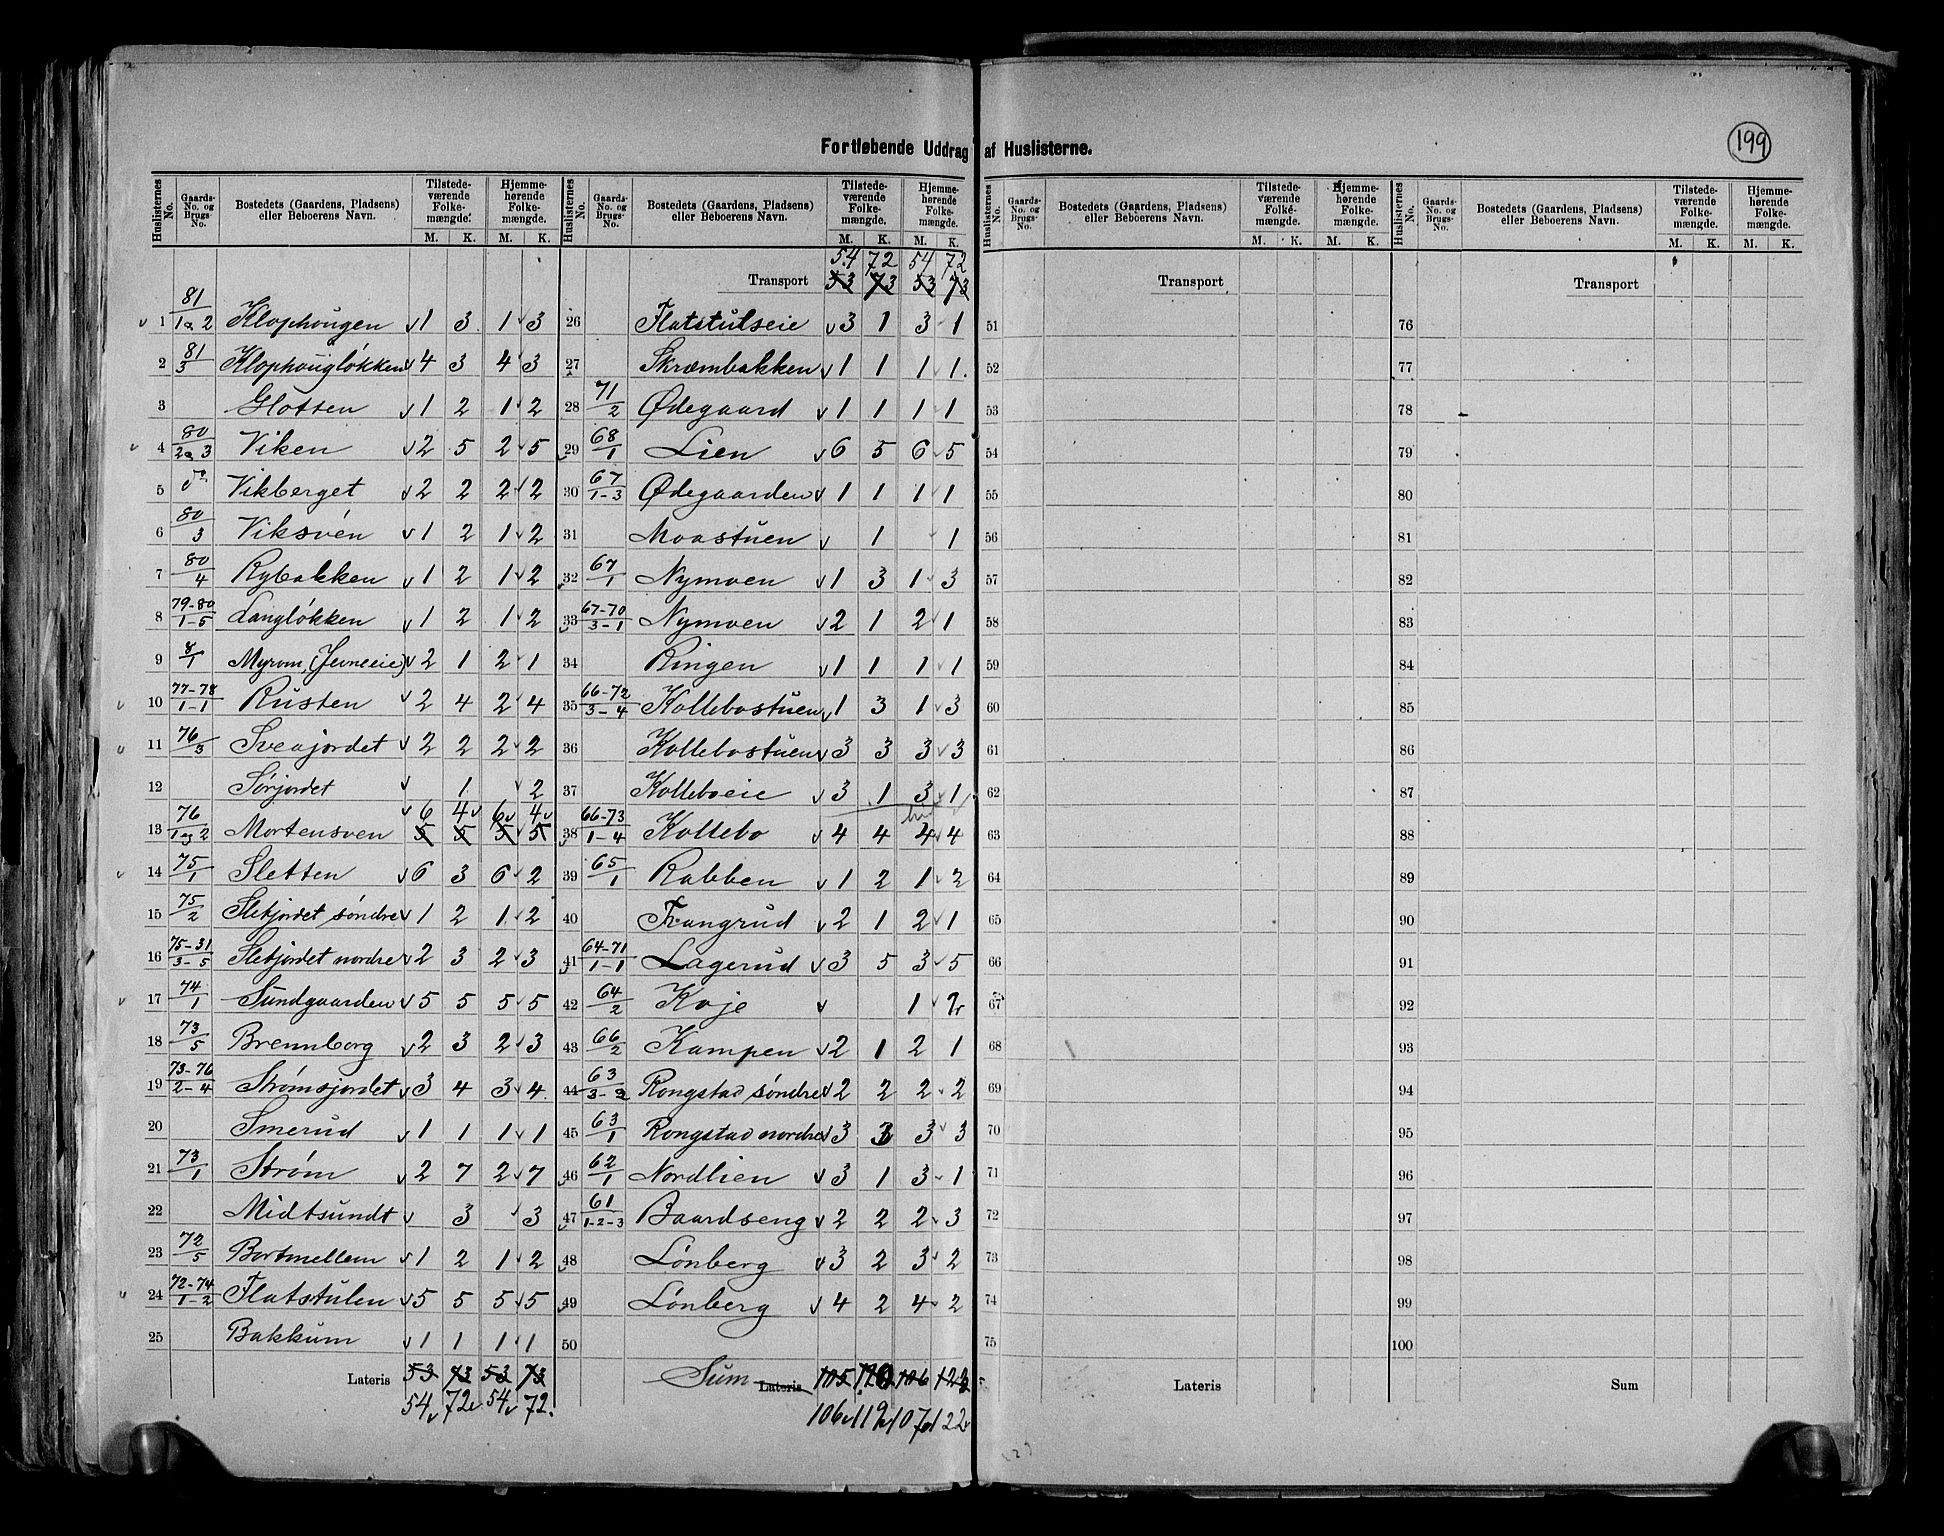 199
Fortløbende Uddrag af Huslisterne.
Huslisternes No. Gaards-No. og Brugs-No. Bostedets (Gaardens, Pladsens) eller Beboerens Navn. Tilstedeværende Folkemængde. Hjemmehørende Folkemængde.
M. K. M. K.
1 81/1 og 2 Klophougen 1 3 1 3
2 81/3 Klophougløkken 4 3 4 3
3 Glotten 1 2 1 2
4 80/2 og 3 Viken 2 5 2 5
5 do Vikberget 2 2 2 2
6 80/3 Viksven 1 2 1 2
7 80/4 Rybakken 1 2 1 2
8 79-80/1-5 Langløkken 1 2 1 2
9 8/1 Myrom (Jevneeie) 2 1 2 1
10 77-78/1-1 Rusten 2 4 2 4
11 76/3 Sveajordet 2 2 2 2
12 Sørjordet 1 2
6 4 6 4
13 76/1 og 2 Mortensven 5 5 5 5
14 75/1 Sletten 6 3 6 2
15 75/2 Sletjordet søndre 1 2 1 2
16 75-31/3-5 Sletjordet nordre 2 3 2 3
17 74/1 Sundgaarden 5 5 5 5
18 73/5 Brennborg 2 3 2 3
19 73-76/2-4 Strømsjordet 3 4 3 4
20 Smerud 1 1 1 1
21 73/1 Strøm 2 7 2 7
22 Midtsundt 3 3
23 72/5 Bortmellem 1 2 1 2
24 72-74/1-2 Flatstulen 5 5 5 5
25 Bakkum 1 1 1 1
Lateris 53 73 53 73
54 72 54 72.
Huslisternes No. Gaards-No. og Brugs-No. Bostedets (Gaardens, Pladsens) eller Beboerens Navn. Tilstedeværende Folkemængde. Hjemmehørende Folkemængde.
M. K. M. K.
54 72 54 72
Transport 53 73 53 73
26 Flatstulseie 3 1 3 1
27 Skræmbakken 1 1 1 1
28 71/2 Ødegaard 1 1 1 1
29 68/1 Lien 6 5 6 5
30 67/1-3 Ødegaarden 1 1 1 1
31 Moastuen 1 1
32 67/1 Nymoen 1 3 1 3
33 67-70/3-1 Nymoen 2 1 2 1
34 Ringen 1 1 1 1
35 66-72/3-4 Kollebostuen 1 3 1 3
36 Kollebostuen 3 3 3 3
37 Kolleboeie 3 1 3 1
38 66-73/1-4 Kollebo 4 4 4 4
39 65/1 Rabben 1 2 1 2
40 Trangrud 2 1 2 1
41 64-71/1-1 Lagerud 3 5 3 5
42 64/2 Koje 1 2
43 66/2 Kampen 2 1 2 1
44 63/3-2 Rongstad søndre 2 2 2 2
45 63/1 Rongstad nordre 3 3 3 3
46 62/1 Nordlien 3 1 3 1
47 61/1-2-3 Baardseng 2 2 2 3
48 Lønberg 3 2 3 2
49 Lønberg 4 2 4 2
50
Sum Lateris 105 120 106 123
106 119 107 122
Huslisternes No. Gaards-No. og Brugs-No. Bostedets (Gaardens, Pladsens) eller Beboerens Navn. Tilstedeværende Folkemængde. Hjemmehørende Folkemængde.
M. K. M. K.
Transport
51
52
53
54
55
56
57
58
59
60
61
62
63
64
65
66
67
68
69
70
71
72
73
74
75
Lateris
Huslisternes No. Gaards-No. og Brugs-No. Bostedets (Gaardens, Pladsens) eller Beboerens Navn. Tilstedeværende Folkemængde. Hjemmehørende Folkemængde.
M. K. M. K.
Transport
76
77
78
79
80
81
82
83
84
85
86
87
88
89
90
91
92
93
94
95
96
97
98
99
100
Sum